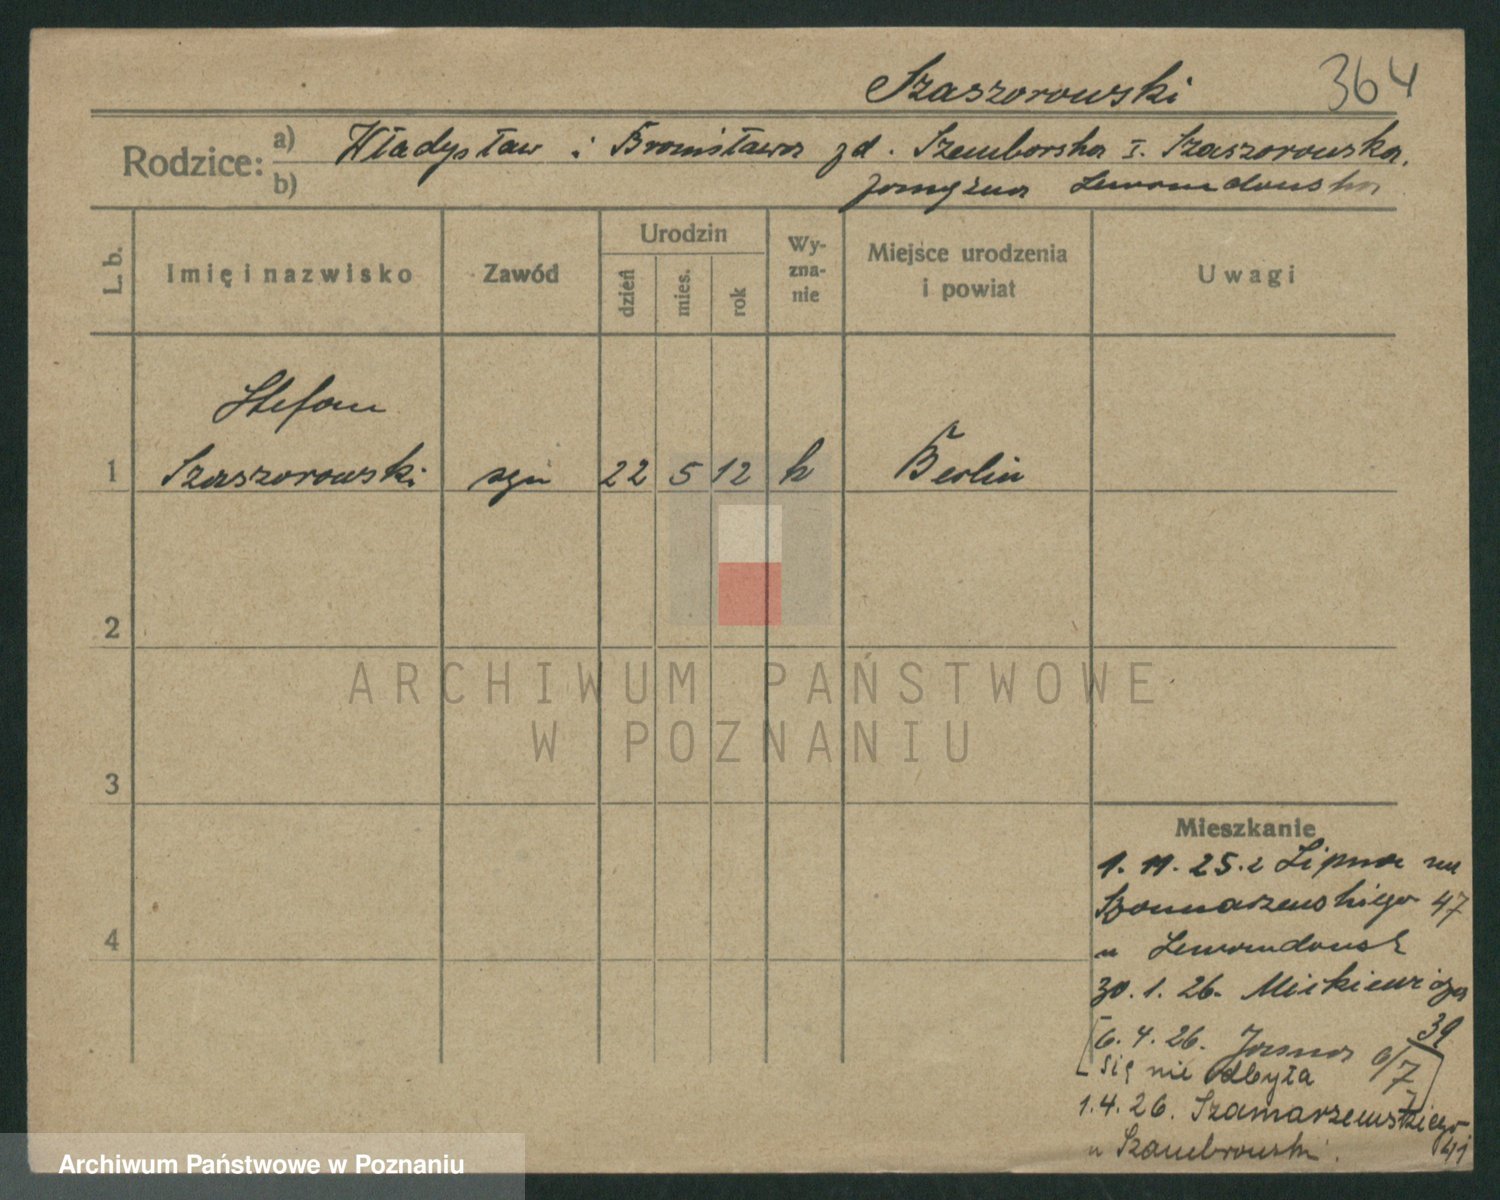 Szaszorowski 364
Rodzice: a) Władysław i Bronisława zd. Szemborska I. Szaszorowska,
b) zamężna Lewandowska
L. b.
Imię i nazwisko
Zawód
Urodzin
dzień
mies.
rok
Wy-
zna-
nie
Miejsce urodzenia
i powiat
Uwagi
Stefan
1 Szaszorowski syn 22 5 12 k Berlin
2
3
4
ARCHIWUM PAŃSTWOWE
W POZNANIU
Mieszkanie
1. 11. 25. z Lipna na
Szamarzewskiego 47
u Lewandowsk
30. 1. 26. Mickiewicza
39
6. 4. 26. Jasna 6/7
się nie odbyła
1.4.26. Szamarzewskiego
41
u Szambrowski.
Archiwum Państwowe w Poznaniu